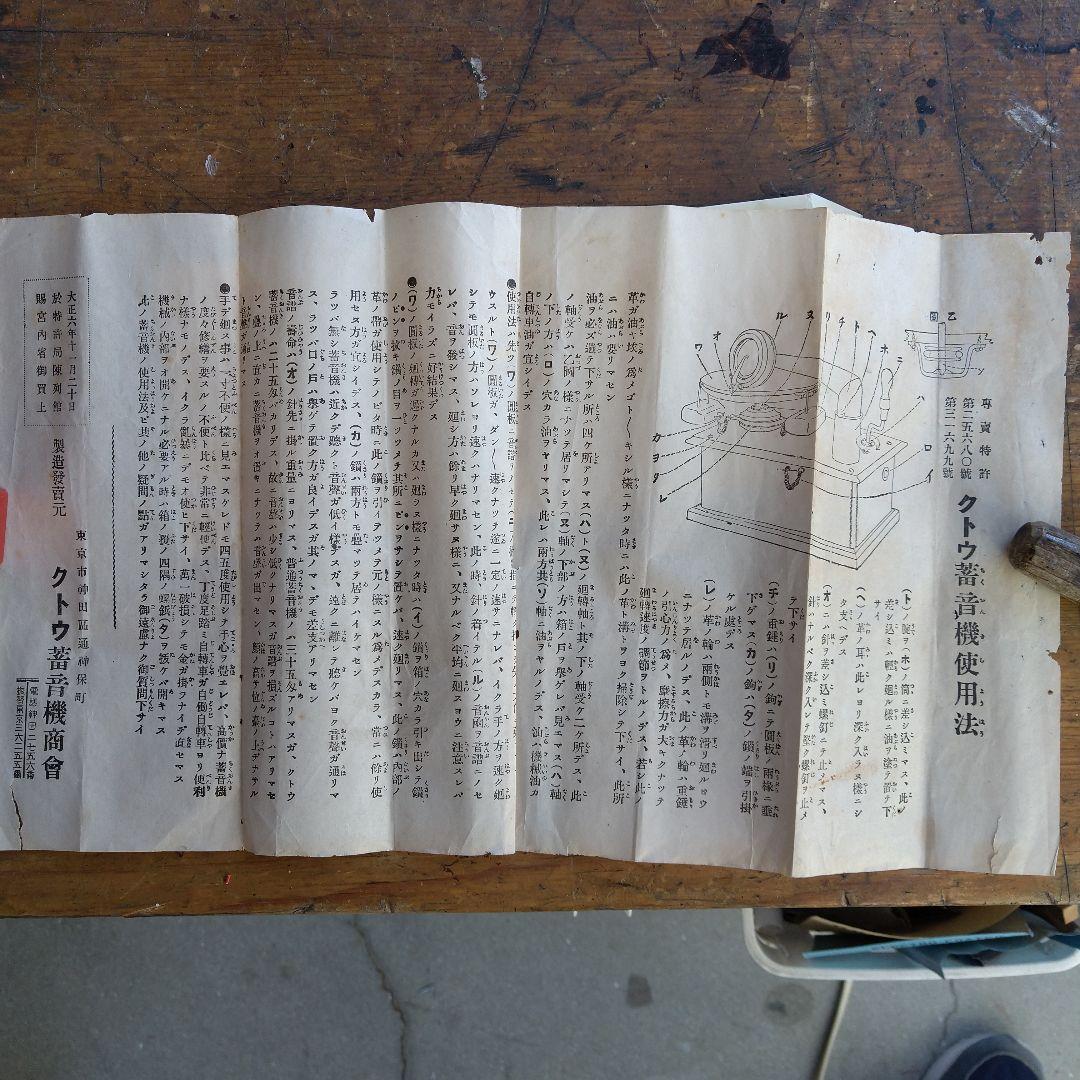 專賣特許
第二五六八〇號
第三一六九九號
クトウ蓄音機使用法
乙圖
イ
ロ
ハ
ニ
ホ
ヘ
ト
チ
リ
ヌ
ル
オ
ワ
カ
ヨ
タ
レ
(ト)ノ腕ヲ(ホ)ノ筒ニ差シ込ミマス、此ノ
差シ込ミハ輕ク廻ル樣ニ油ヲ塗テ置テ下
サイ
(ヘ)ノ革ノ耳ハ此レヨリ深ク入ラヌ樣ニシ
タ支ヘデス
(オ)ニハ針ヲ差シ込ミ螺釘ニテ止シマス、
針ハナルベク深ク入レテ堅ク螺釘ヲ止メ
テ下サイ
(チ)ノ重錘ハ(リ)ノ鉤ニテ圓板ノ兩緣ニ垂
下ゲマス(カ)ノ鉤ハ(タ)ノ鎖ノ端ヲ引掛
ケル處デス
(レ)ノ革ノ輪ハ兩側トモ溝ヲ滑リ廻ルヨウ
ニナツテ居ルノデス、此ノ革ノ輪ハ重錘
ノ引心力ノ爲メ、摩擦力ガ大キクナツテ
廻轉速度ヲ調節ヲトルノデス、若シ此ノ
革ガ油ヤ埃ノ爲メゴト〱キシル樣ニナツタ時ニハ此ノ革ト溝トヲヨク掃除シテ下サイ、此所
ニハ油ハ要リマセン
油ヲ必ズ遣テ下サル所ハ四ケ所アリマス(ハ)ト(ヌ)ノ廻轉軸ト其ノ下ノ軸受ケ二ケ所デス、此
ノ軸受ケハ乙圖ノ樣ニナツテ居リマシテ(ヌ)軸ノ下部ノ方ハ箱ノ戶ヲ擧ゲレバ見エマス(ハ)軸
ノ下ノ方ハ(ロ)ノ穴カラ油ヲヤリマス、此レハ兩方共(ソ)ノ軸ニ油ヲヤルノデス、油ハ機械油カ
自轉車油ガ宜シイデス
ウスルト(ワ)ノ圓板ガ、ダン〱速クナツテ遂ニ一定ノ速サニナレバ、イクラ手ノ方ヲ速ク廻
シテモ圓板ノ方ハソレヨリ速クハナリマセン、此ノ時ニ針ノ着イテル(ル)ノ音函ヲ音譜ニノセ
レバ、音ヲ發シマス、廻シ方ハ餘リ早ク廻サヌ樣ニ、又ナルベク平均ニ廻スヨウニ注意スレバ
カモイラズニ好結果デス
●(ワ)ノ圓板ノ廻轉ガ遲クナルカ又ハ廻ヌ樣ニナツタ時ハ(イ)ノ鎖ヲ箱ノ穴カラ引キ出シテ鎖
ノピンヲ拔キ鎖ノ目ヲ一ツツメテ其所ニピンヲサシテ置ケバ、速ク廻リマス、此ノ鎖ハ內部ノ
革ノ帶ガ使用シテノビタ時ニ此ノ鎖ヲ引イテツメテ元ノ樣ニスル爲メデスカラ、常ニハ餘リ使
用セヌ方ガ宜シイデス、(カ)ノ鎖ハ兩方トモ疊マリテ居テハイケマセン
ラツパ無シ蓄音機ハ近クデ聽クト音聲ガ低イ樣デスガ、遠クニ離レテ聽クバヨク音聲ガ通リマ
ス、ラツパ口ノ戶ハ擧ゲテ置ク方ガ良イデスガ其ノマヽデモ差支アリマセン
音譜ノ壽命ハ(オ)ノ針先ニ掛ル重量ニヨリマス、普通蓄音機ノハ三十五匁アリマスガ、クトウ
蓄音機ノハ二十五匁バカリデス、故ニ音量ハ少シ低クナリマスガ音譜ヲ損ズルコトハアリマセ
●手デ廻ス事ハ一寸不便ノ樣ニ見エマスケレドモ四五度使用シテ手心ヲ覺エレバ、高價ナ蓄音機
ノ度々修繕ヲ要スルノ不便ト比ベテ非常ニ輕便デス、丁度足踏ミ自轉車ガ自働自轉車ヨリ便利
ナ樣ナモノデス、イクラ亂暴ニデモオ使ヒ下サイ、萬一破損シテモ金ガ掛ラナイデ直セマス
機械ノ內部ヲオ開ケニナル必要アル時ハ箱ノ裏ノ四隅ノ螺釘(タ)ヲ拔ケバ開キマス
此ノ蓄音機ノ使用法及ビ其ノ他ノ疑問ノ點ガアリマシタラ御遠慮ナク御質問下サイ
東京市神田區通神保町
製造發賣元 クトウ蓄音機商會
電話神田二七五六番
大正六年十一月二十日
於特許局陳列館
賜宮內省御買上